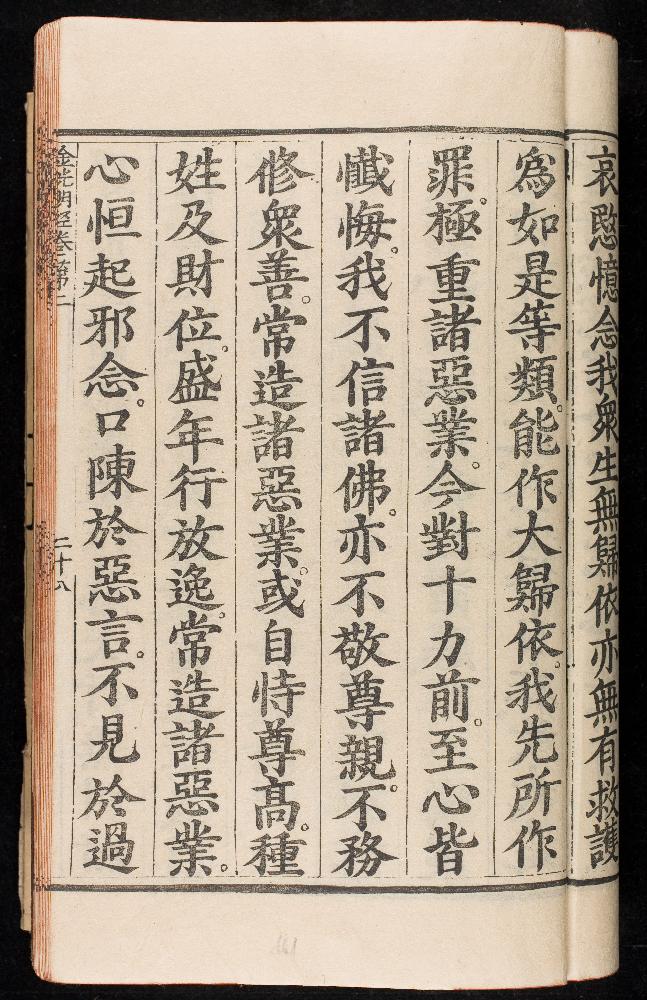 哀愍憶念我眾生無歸依亦無有救護
爲如是等類。能作大歸依。我先所作
罪。極重諸惡業。今對十力前。至心皆
懺悔。我不信諸佛。亦不敬尊親。不務
修眾善。常造諸惡業。或自恃尊高。種
姓及財位。盛年行放逸。常造諸惡業。
心恒起邪念。口陳於惡言。不見於過
金光明經卷第二
二十八